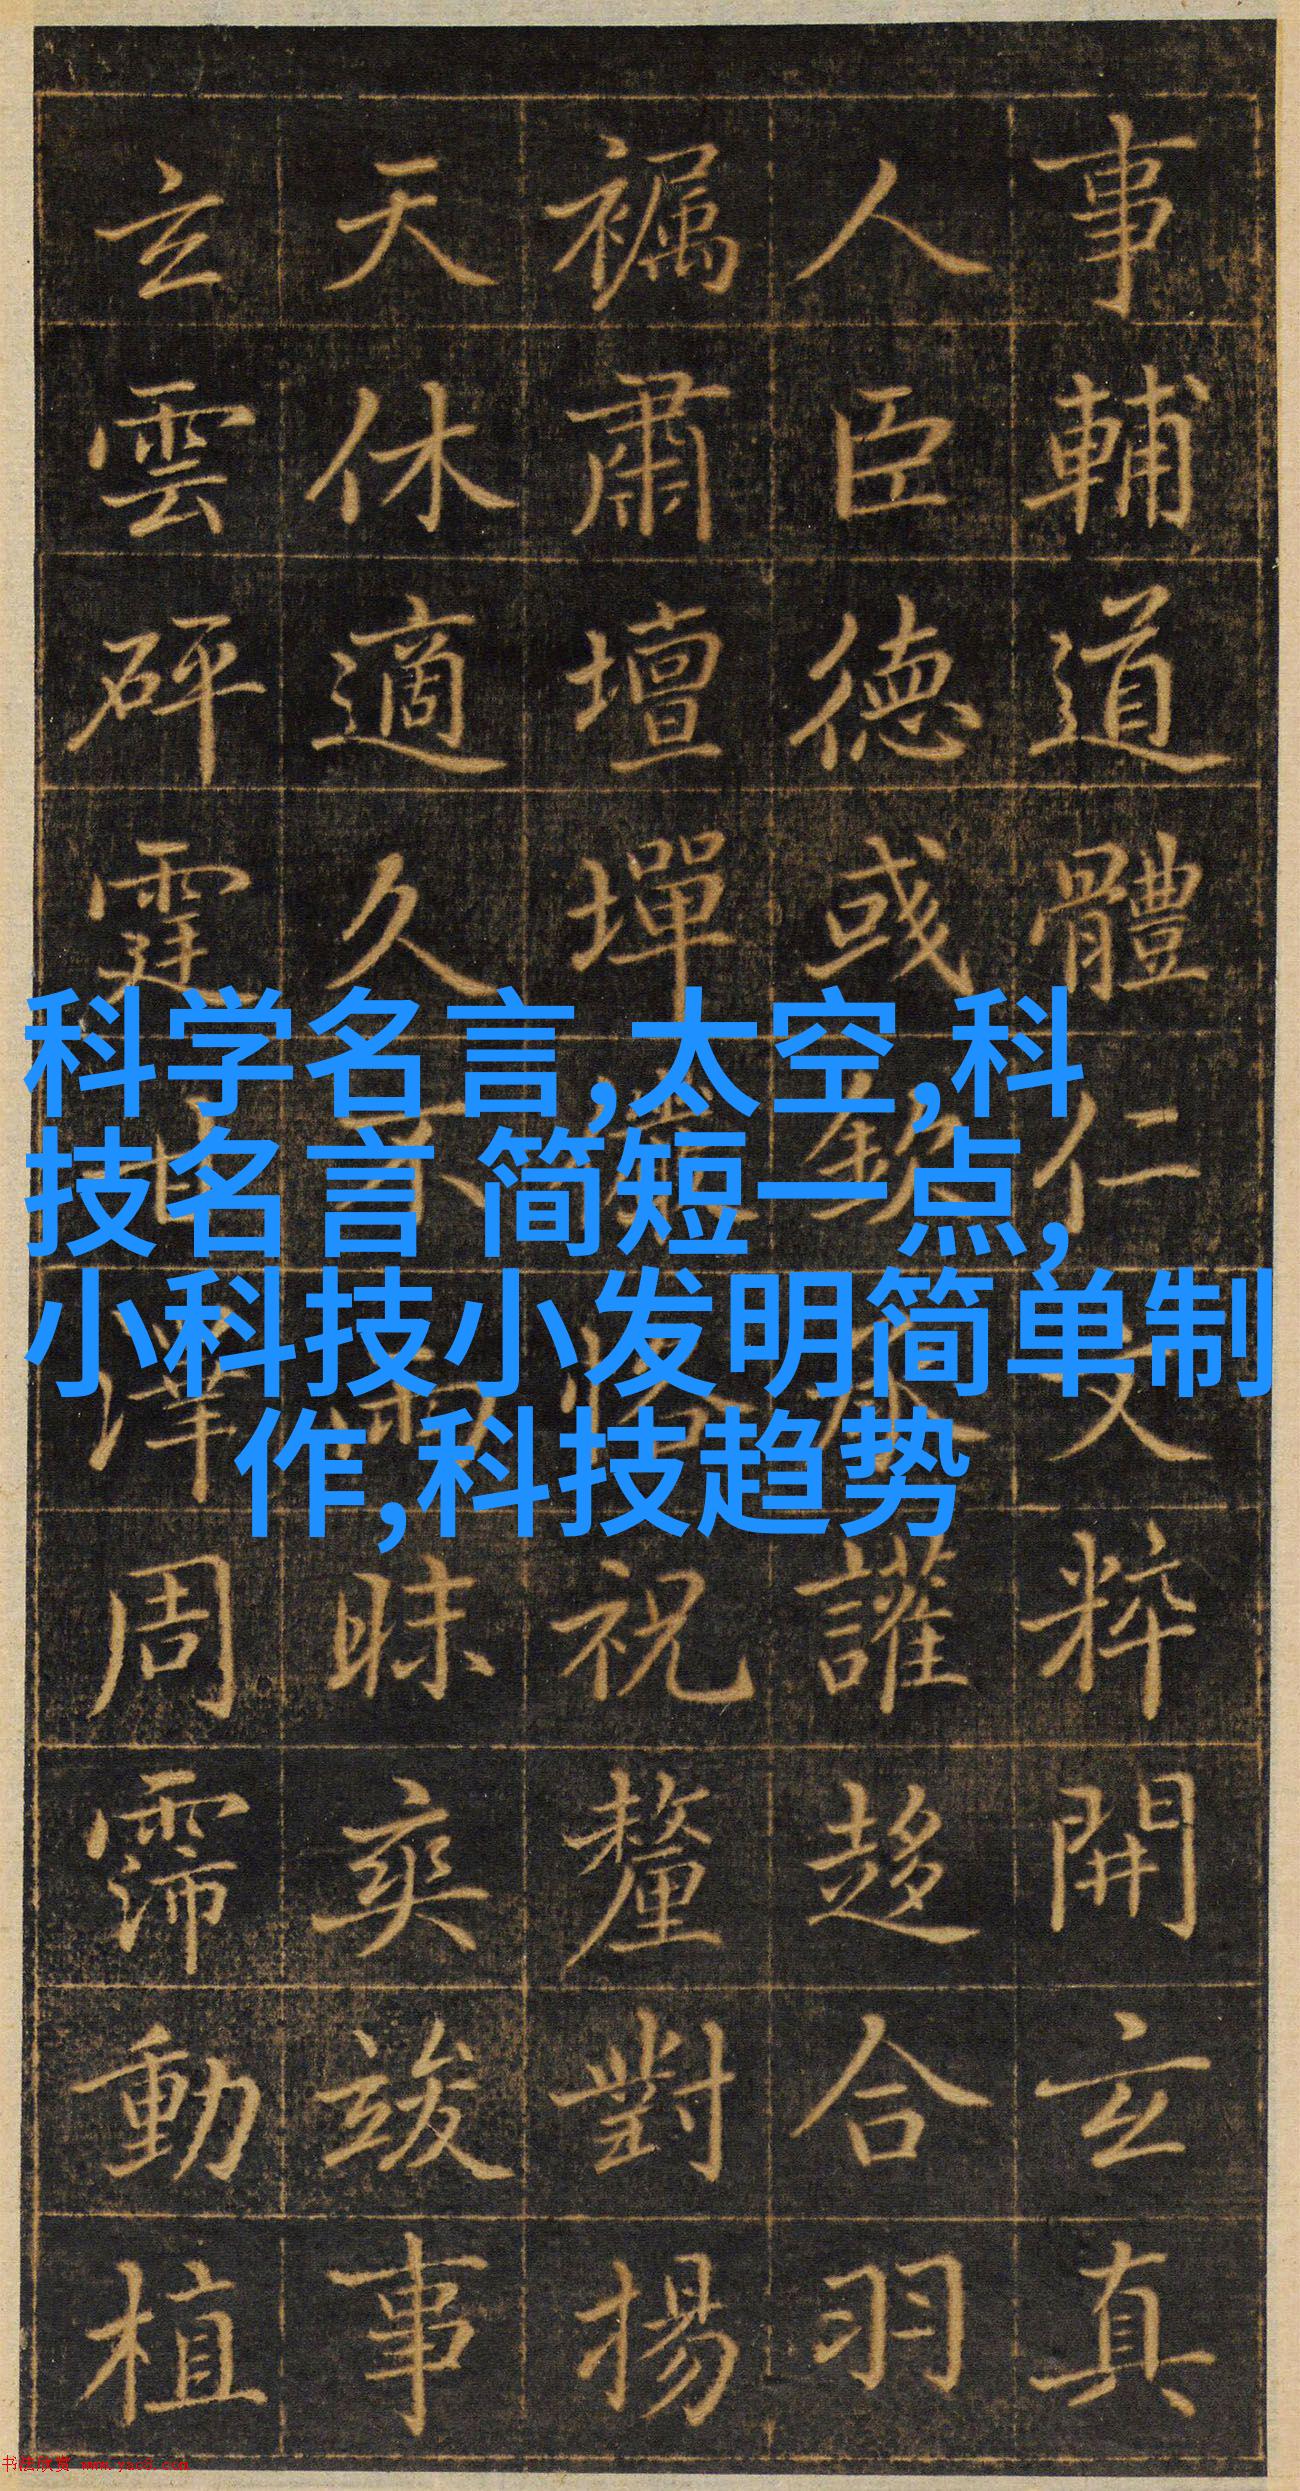 事輔道體仁文粹開玄真
人臣德或欽讙趍合羽
肅壇墠恪祝釐對揚
天休適久不昧爽竢事
玄雲砰霆澤周霈動植
科学名言,太空,科
技名言 简短一点,
小科技小发明简单制
作,科技趋势
书法欣赏 www.yac8.com